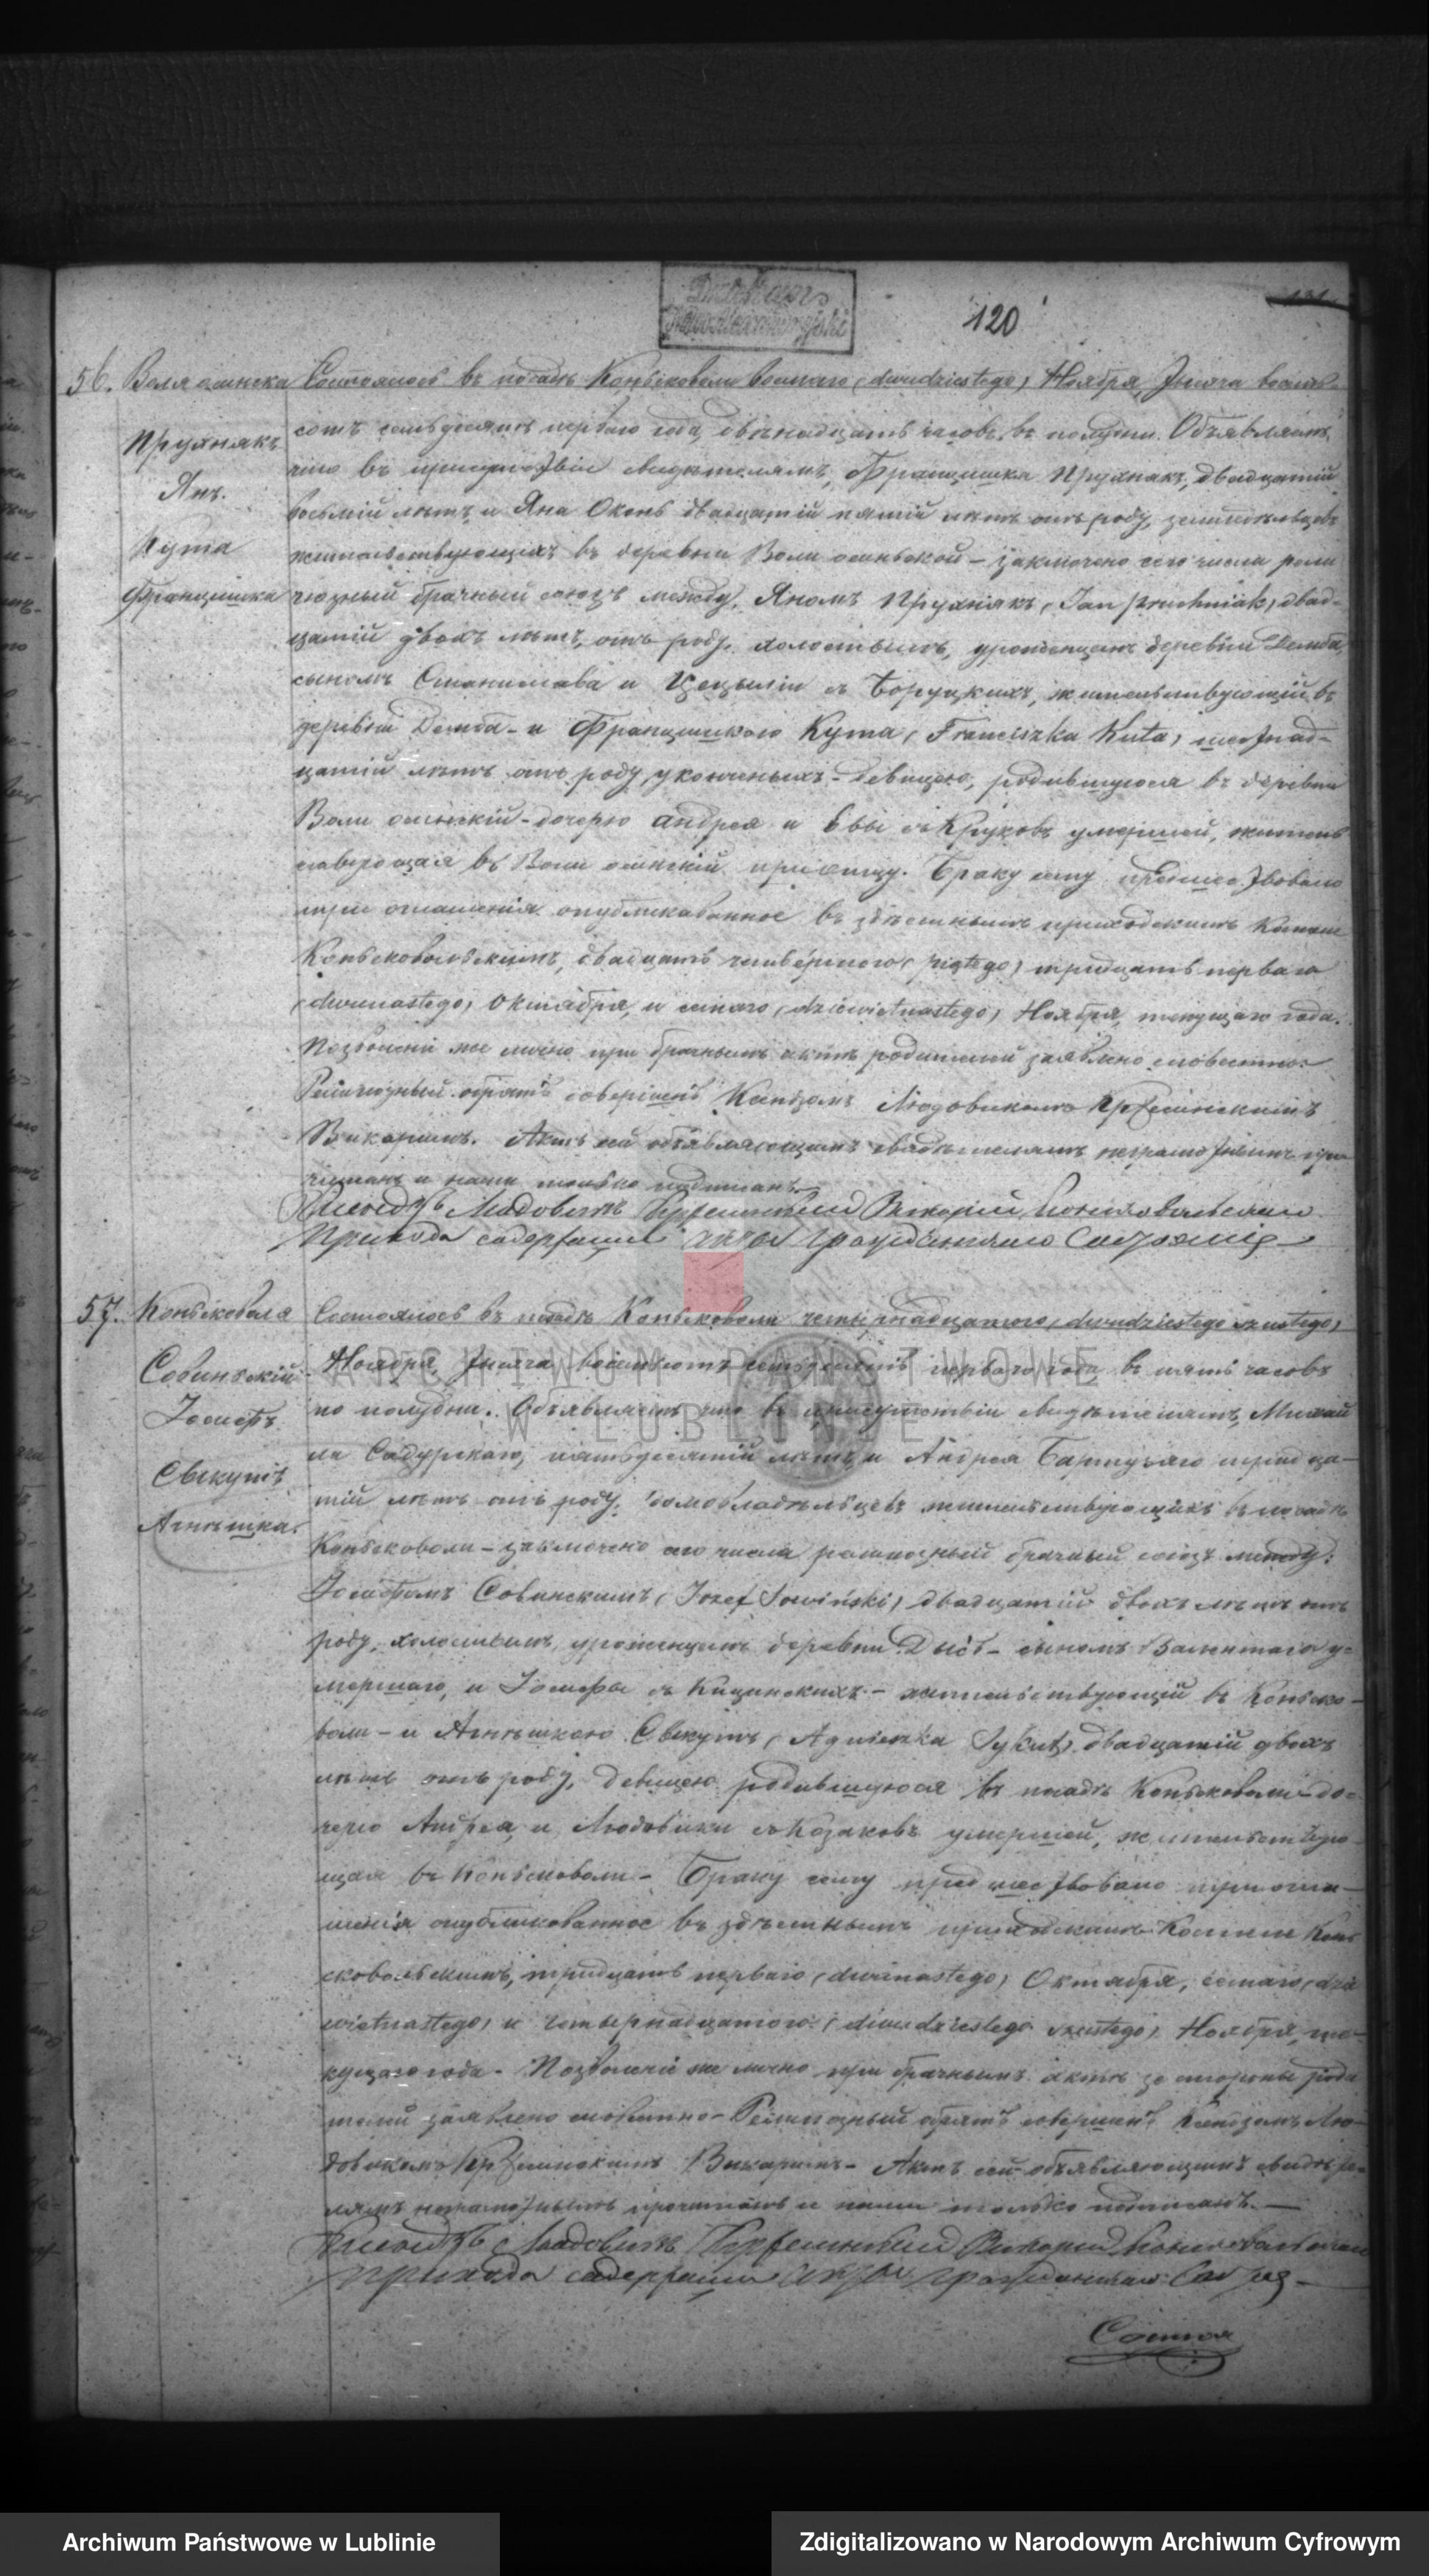 120
56. Воля осинска Состоялось въ посадѣ Коньсковоли восьмаго (dwudziestego) Ноября, Тысяча восемь-
сотъ семьдесятъ перваго года, двѣнадцать часовъ въ полудни. Объявляемъ,
Прухнякъ
что въ присутствіи свидѣтелямъ, Францишка Прухнякъ, двадцатій
Янъ.
восьмій лѣтъ, и Яна Оконь двадцатій пятій лѣтъ отъ роду,
Кута
жительствующихъ въ деревни Воли осиньской – заключено сего числа рели
Францишка
гіозный брачный союзъ между, Яномъ Прухнякъ, (Jan Pruchniak) двад-
цатій двохъ лѣтъ, отъ роду, холостымъ, урожденцемъ деревни Демба,
сыномъ Станислава и Цецыліи съ Боруцкихъ, жительствующій въ
деревни Демба – и Францишкою Кута, (Franciszka Kuta) шестнад-
цатій лѣтъ отъ роду, укончныхъ – девицею, родившуюся въ деревни
Воли осинскій – дочерю Андрея и Евы съ Круковъ умершей, житель
ствующая въ Воли осинскій при отцу. Браку сему предшествовало
три оглашенія опубликованное въ здѣстнымъ приходскимъ
Коньсковольскимъ, двадцать четвертого (piątego) тридцать перваго
(dwunastego) Октября, и семаго (dziewietnastego) Ноября, текущаго года.
Позволеніе же лично при брачнымъ актѣ родителей заявлено словестно.
Религіозный обрятъ совершенъ Ксендзомъ Людовикомъ
Викаримъ. Актъ сей объявляющимъ свидѣтелямъ неграмотнымъ про
читанъ и нами только подписанъ.
Ксендзъ Людовикъ Викарій Коньсковольскаго
Прихода содержащій акты гражданскаго Состоянія
57. Коньсковоля Состоялось въ посадѣ Коньсковоли четырнадцатого (dwudziestego szustego)
Ноября, Тысяча восемьсотъ семьдесятъ перваго года, въ пять часовъ
Совинскій
по полудни. Объявляемъ что въ присутствіи свидѣтелямъ, Михай
Іосифъ
ла Садурскаго, пятьдесятій лѣтъ, и Андрея тридца-
Сыкутъ
тій лѣтъ отъ роду, домовладѣльцевъ жительствующихъ въ посадѣ
Агнѣшка.
Коньсковоли – заключено сего числа религіозный брачный союзъ между:
Іосифомъ Совинскимъ, (Jozef Sowiński) двадцатій двохъ лѣтъ отъ
роду, холостымъ, урожденцемъ деревни Дысь – сыномъ Валентаго у-
мершаго, и Іосифы съ Кицинскихъ – жительствующій въ Коньско-
воли – и Агнѣшкою Сыкутъ, (Agnieszka Sykut) двадцатій двохъ
лѣтъ отъ роду, девицею родившуюся въ посадѣ Коньсковоли – до-
черю Андрея, и Людовики съ Козаковъ умершей, жительствую-
щая въ Коньсковоли – Браку сему предшествовало три огла-
шенія опубликованное въ здѣстнымъ приходскимъ Костелѣ Конь
сковольскимъ, тридцать перваго (dwunastego) Октября, семаго (dzie
wietnastego) и четырнадцатого (dwudziestego szustego) Ноября, те-
кущаго года – Позволеніе же лично при брачнымъ актѣ зе стороны роди
телей заявлено словестно – Религіозный обрятъ совершенъ Ксендзомъ Лю-
довикомъ Викаримъ – Актъ сей объявляющимъ свидѣте-
лямъ неграмотнымъ прочитанъ и нами только подписанъ. –
Ксендзъ Людовикъ Викарій Коньсковольскаго
Прихода содержащій Акты гражданскаго
ARCHIWUM PAŃSTWOWE
W LUBLINIE
Archiwum Państwowe w Lublinie
Zdigitalizowano w Narodowym Archiwum Cyfrowym